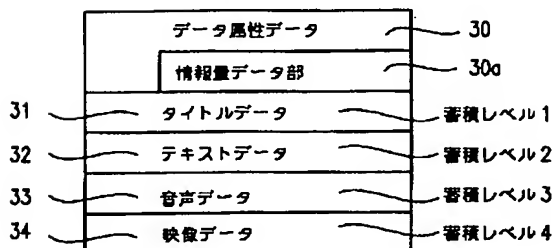 データ属性データ 30
情報量データ部 30a
31 タイトルデータ 蓄積レベル1
32 テキストデータ 蓄積レベル2
33 音声データ 蓄積レベル3
34 映像データ 蓄積レベル4